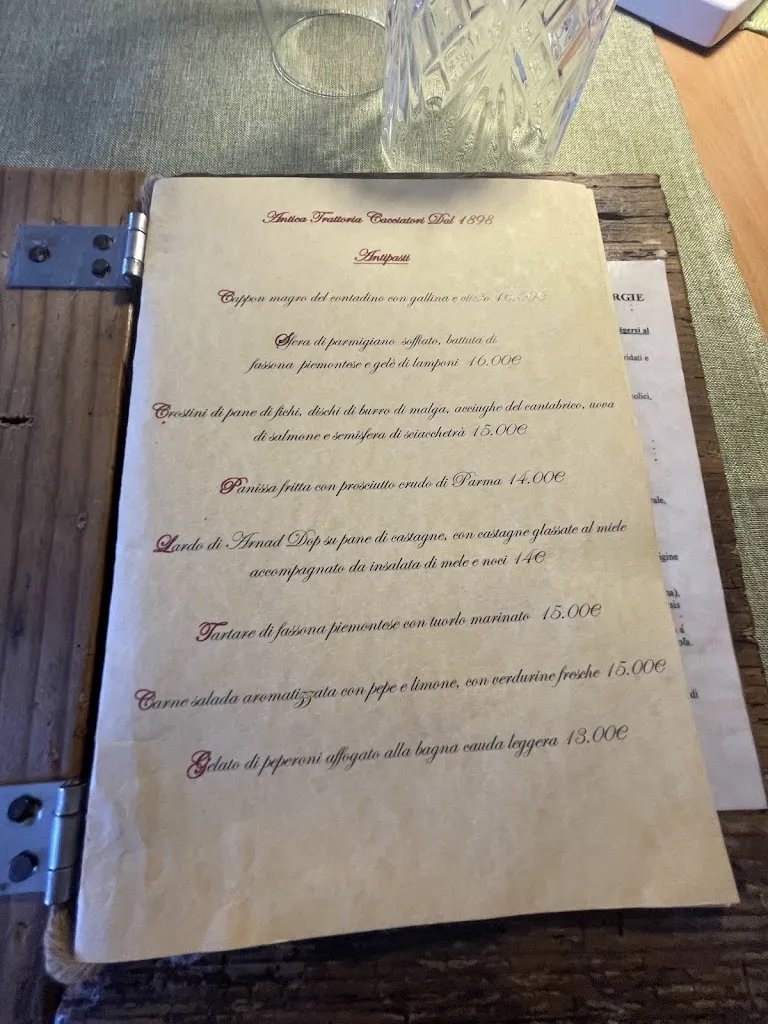 Antica Trattoria Cacciatori Dal 1898
Antipasti
Cappon magro del contadino con gallina e vitello 16.00€
Sfera di parmigiano soffiato, battuta di
fassona piemontese e gelè di lamponi 16.00€
Crostini di pane di fichi, dischi di burro di malga, acciughe del cantabrico, uova
di salmone e semisfera di sciacchetrà 15.00€
Panissa fritta con prosciutto crudo di Parma 14.00€
Lardo di Arnad Dop su pane di castagne, con castagne glassate al miele
accompagnato da insalata di mele e noci 14€
Tartare di fassona piemontese con tuorlo marinato 15.00€
Carne salada aromatizzata con pepe e limone, con verdurine fresche 15.00€
Gelato di peperoni affogato alla bagna cauda leggera 13.00€
RGIE
igersi al
ridati e
igine
di